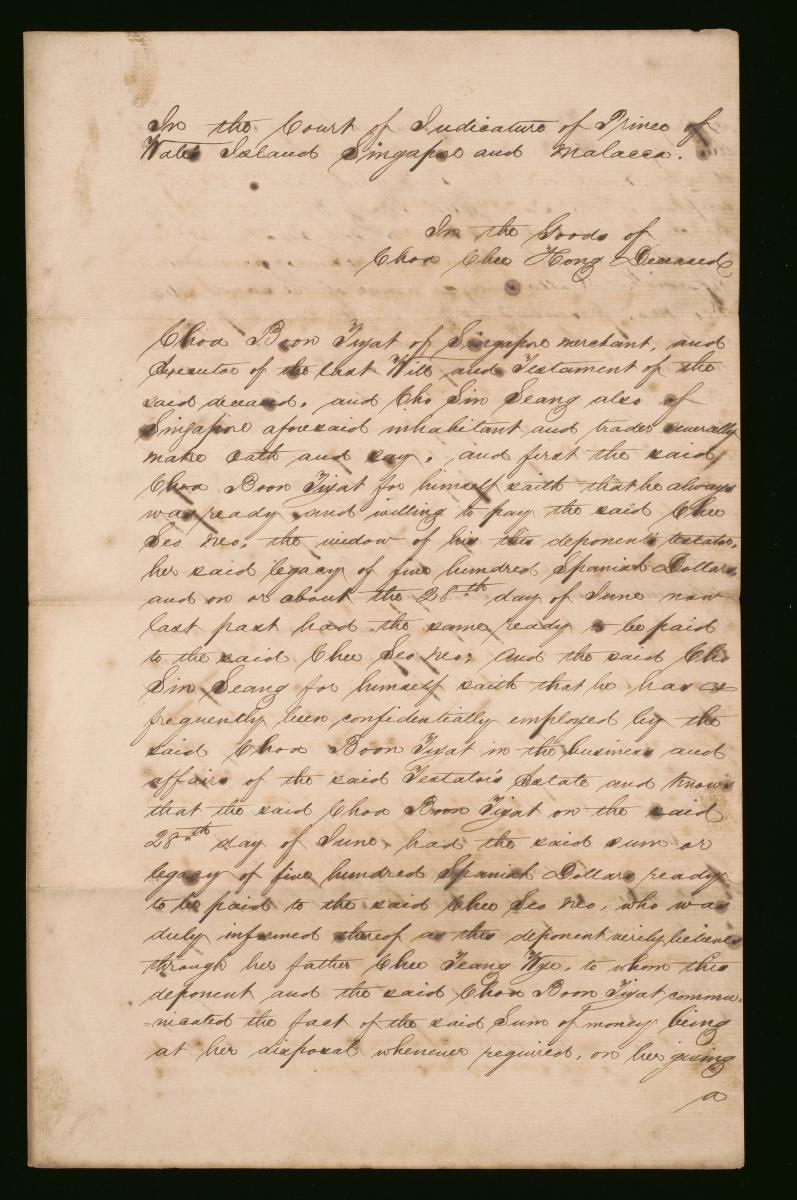 In the Court of Judicature of Prince of
Wales Island Singapore and Malacca.
In the Goods of
Choa Chee Hong Deceased
Choa Boon Tiyat of Singapore merchant, and
Executor of the last Will and Testament of the
said deceased, and Cho Sin Seang also of
Singapore aforesaid inhabitant and trader severally
make oath and say, and first the said
Choa Boon Tiyat for himself saith that he always
was ready and willing to pay the said Chee
Seo Neo, the widow of his this deponents testator,
her said legacy of five hundred Spanish Dollars
and on or about the 28th day of June now
last past had the same ready to be paid
to the said Chee Seo Neo; And the said Cho
Sin Seang for himself saith that he has
frequently been confidentially employed by the
said Choa Boon Tiyat in the business and
affairs of the said Testator's Estate and knows
that the said Choa Boon Tiyat on the said
28th day of June, had the said sum or
legacy of five hundred Spanish Dollars ready
to be paid to the said Chee Seo Neo, who was
duly informed thereof as this deponent verily believes
through her father Chee Teang Wye, to whom this
deponent and the said Choa Boon Tiyat commu-
-nicated the fact of the said Sum of money being
at her disposal whenever required, on her giving
a